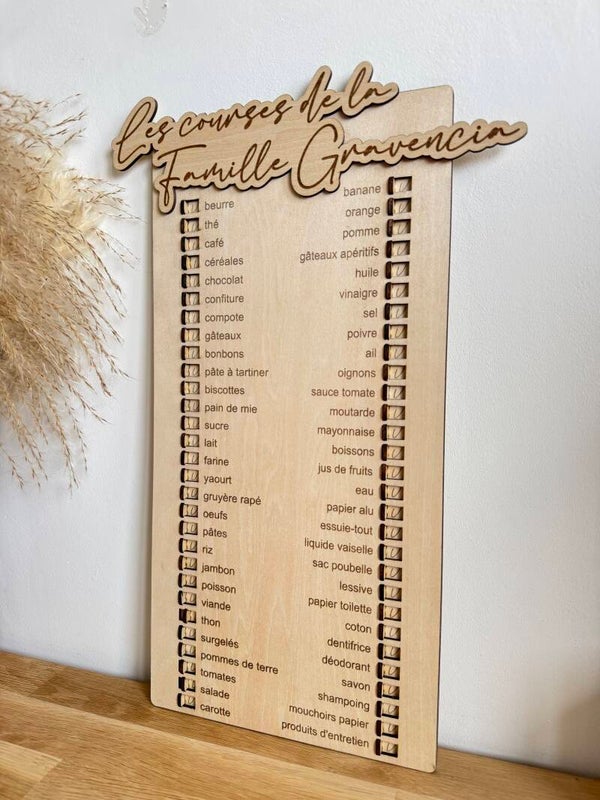 Les courses de la
Famille Gravencia
beurre
thé
café
céréales
chocolat
confiture
compote
gâteaux
bonbons
pâte à tartiner
biscottes
pain de mie
sucre
lait
farine
yaourt
gruyère rapé
oeufs
pâtes
riz
jambon
poisson
viande
thon
surgelés
pommes de terre
tomates
salade
carotte
banane
orange
pomme
gâteaux apéritifs
huile
vinaigre
sel
poivre
ail
oignons
sauce tomate
moutarde
mayonnaise
boissons
jus de fruits
eau
papier alu
essuie-tout
liquide vaiselle
sac poubelle
lessive
papier toilette
coton
dentifrice
déodorant
savon
shampoing
mouchoirs papier
produits d'entretien